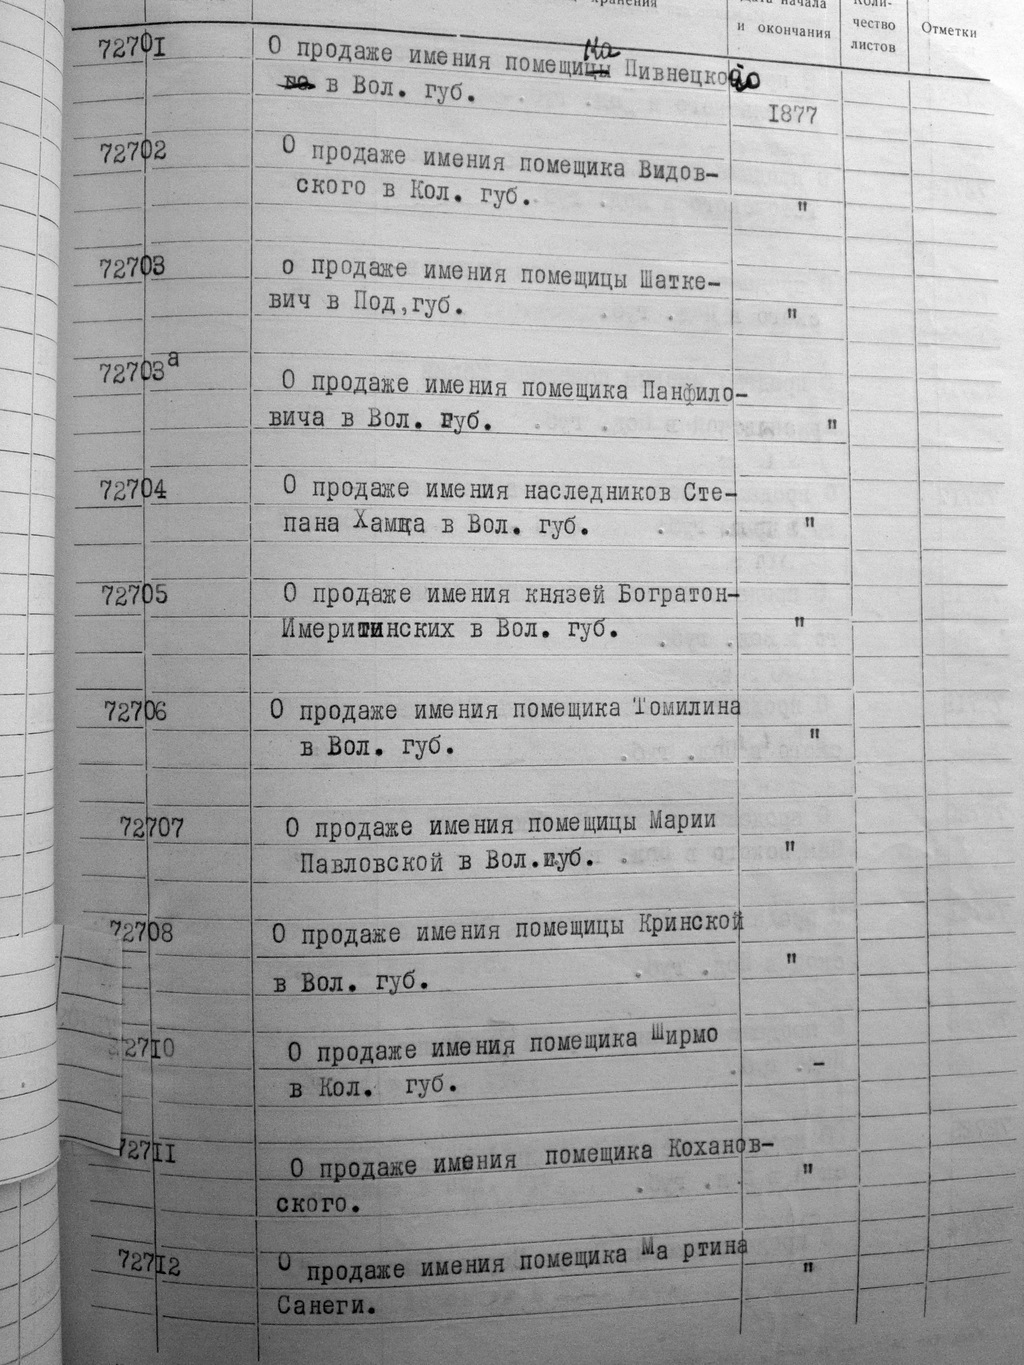 хранения
Дата начала
и окончания
Коли-
чество
листов
Отметки
72701
О продаже имения помещицы Пивнецкой
ка
в Вол. губ.
1877
72702
О продаже имения помещика Видов-
ского в Кол. губ.
"
72703
о продаже имения помещицы Шатке-
вич в Под,губ.
"
72703а
О продаже имения помещика Панфило-
вича в Вол. губ.
"
72704
О продаже имения наследников Сте-
пана Хамца в Вол. губ.
"
72705
О продаже имения князей Богратон-
Имеритинских в Вол. губ.
"
72706
О продаже имения помещика Томилина
в Вол. губ.
"
72707
О продаже имения помещицы Марии
Павловской в Вол.губ.
"
72708
О продаже имения помещицы Кринской
в Вол. губ.
"
2710
О продаже имения помещика Ширмо
в Кол. губ.
-
72711
О продаже имения помещика Коханов-
ского.
"
72712
О продаже имения помещика Ма ртина
Санеги.
"